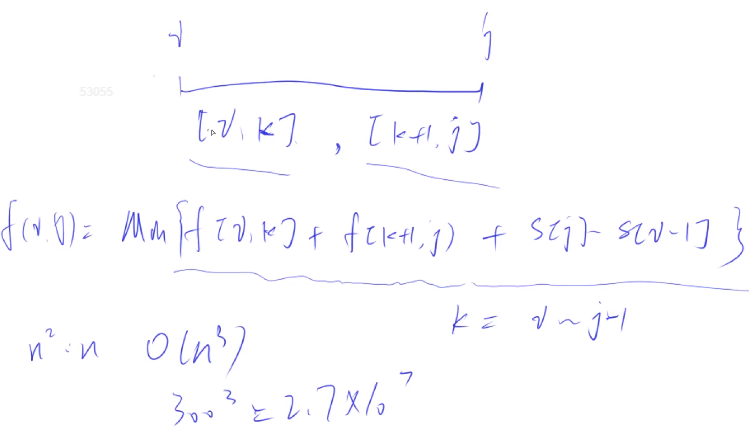 i j
53055
[i, k] , [k+1, j]
f(i, j) = Min{f[i, k] + f[k+1, j) + S[j] - S[i-1]}
k = i ~ j-1
n²·n O(n³)
300³ = 2.7×10⁷